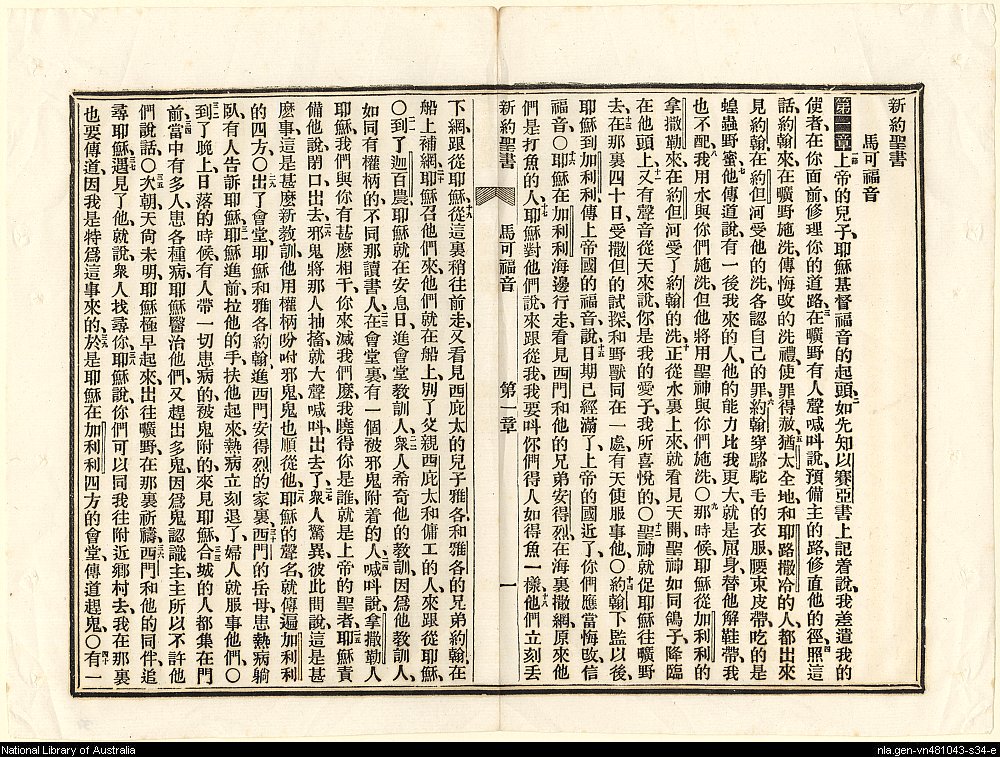 新約聖書
馬可福音
第一章上帝的兒子耶穌基督福音的起頭、如先知以賽亞書上記着說、我差遣我的
使者在你面前修理你的道路、在曠野有人聲喊叫說、預備主的路、修直他的徑、照這
話、約翰來在曠野施洗、傳悔改的洗禮、使罪得赦、猶太全地和耶路撒冷的人都出來
見約翰、在約但河受他的洗、各認自己的罪、約翰穿駱駝毛的衣服、腰束皮帶、吃的是
蝗蟲野蜜、他傳道說、有一後我來的人、他的能力比我更大、就是屈身替他解鞋帶、我
也不配、我用水與你們施洗、但他將用聖神與你們施洗、〇那時候耶穌從加利利的
拿撒勒來、在約但河受了約翰的洗、正從水裏上來、就看見天開、聖神如同鴿子降臨
在他頭上、又有聲音從天來說、你是我的愛子、我所喜悅的、〇聖神就促耶穌往曠野
去、在那裏四十日、受撒但的試探、和野獸同在一處、有天使服事他、〇約翰下監以後、
耶穌到加利利、傳上帝國的福音、說、日期已經滿了、上帝的國近了、你們應當悔改、信
福音、〇耶穌在加利利海邊行走、看見西門和他的兄弟安得烈、在海裏撒網、原來他
們是打魚的人、耶穌對他們說、來跟從我、我要叫你們得人如得魚一樣、他們立刻丟
新約聖書 馬可福音 第一章 一
下網、跟從耶穌、從這裏稍往前走、又看見西庇太的兒子雅各、和雅各的兄弟約翰、在
船上補網、耶穌召他們來、他們就在船上別了父親西庇太和傭工的人、來跟從耶穌、
〇到了迦百農、耶穌就在安息日、進會堂教訓人、衆人希奇他的教訓、因爲他教訓人、
如同有權柄的、不同那讀書人、在會堂裏有一個被邪鬼附着的人、喊叫說、拿撒勒人
耶穌、我們與你有甚麽相干、你來滅我們麽、我曉得你是誰、就是上帝的聖者、耶穌責
備他說、閉口出去、邪鬼將那人抽搐、就大聲喊叫出去了、衆人驚異、彼此問說、這是甚
麽事、這是甚麽新教訓、他用權柄吩咐邪鬼、鬼也順從他、耶穌的聲名、就傳遍加利利
的四方、〇出了會堂、耶穌和雅各約翰、進西門安得烈的家裏、西門的岳母、患熱病躺
臥、有人告訴耶穌、耶穌進前拉他的手、扶他起來、熱病立刻退了、婦人就服事他們、〇
到了晚上、日落的時候、有人帶一切患病的、被鬼附的、來見耶穌、合城的人都集在門
前、當中有多人患各種病、耶穌醫治他們、又趕出多鬼、因爲鬼認識主、主所以不許他
們說話、〇次朝天尙未明、耶穌極早起來、出往曠野、在那裏祈禱、西門和他的同伴、追
尋耶穌、遇見了他、就說、衆人找尋你、耶穌說、你們可以同我往附近鄉村去、我在那裏
也要傳道、因我是特爲這事來的、於是耶穌在加利利四方的會堂、傳道趕鬼、〇有一
National Library of Australia
nla.gen-vn481043-s34-e